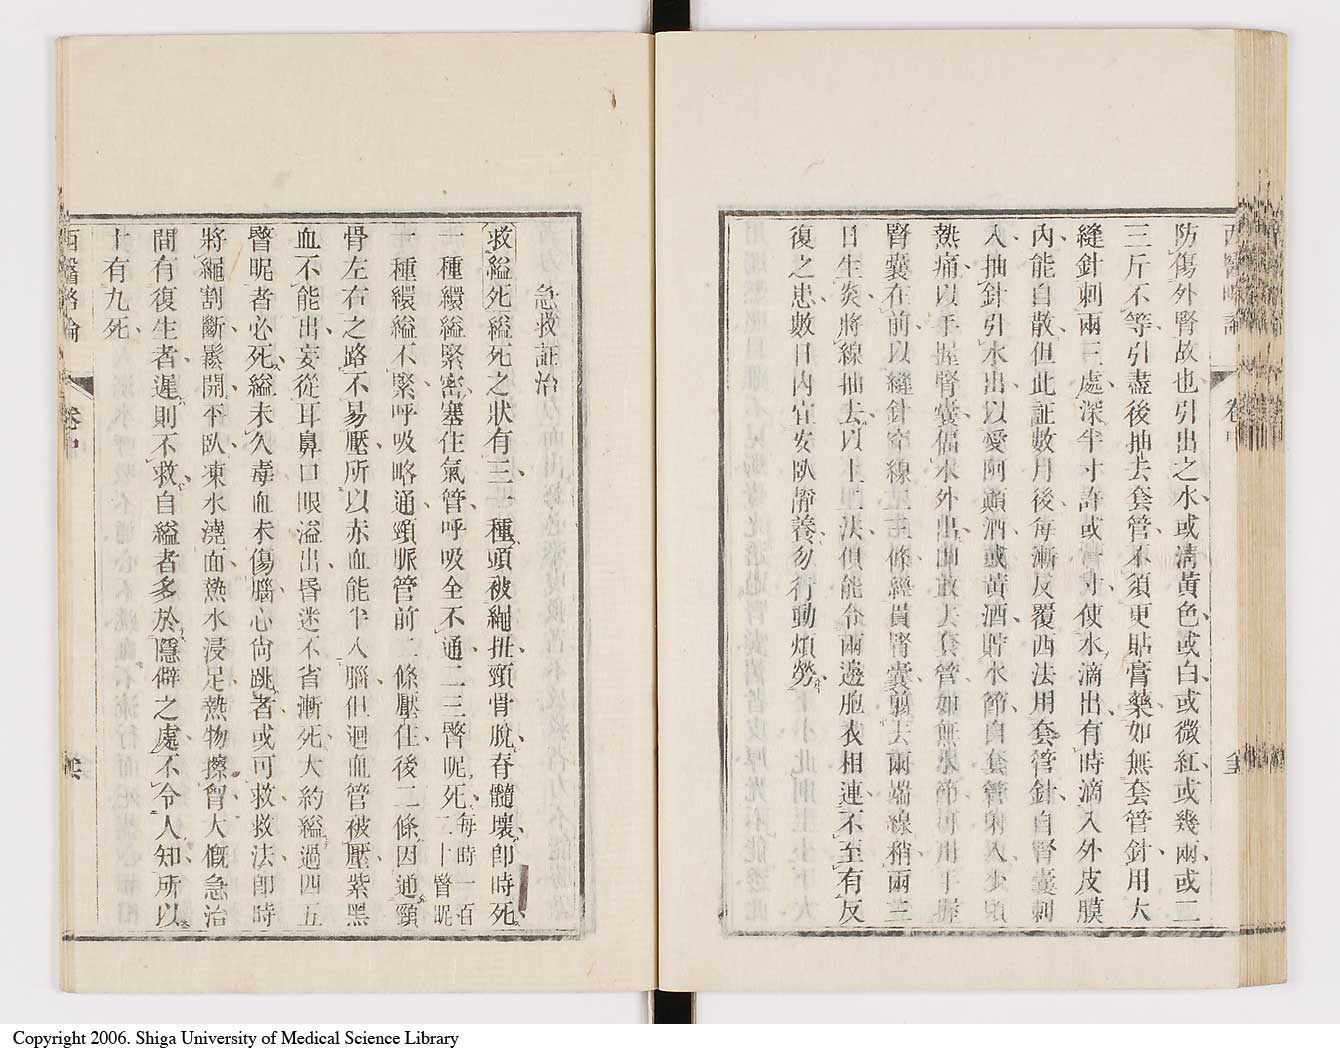 防傷外腎故也引出之水或清黃色或白或微紅或幾兩或二
三斤不等引盡後抽去套管不須更貼膏藥如無套管針用大
縫針刺兩三處深半寸許或一寸使水滴出有時滴入外皮膜
內能自散但此証數月後每漸反覆西法用套管針自腎囊刺
入抽針引水出以愛阿顚酒或黃酒貯水節自套管射入少頃
熱痛以手握腎囊偪水外出卽啟去套管如無水節可用手握
腎囊在前以縫針穿線五七條經貫腎囊剪去兩端線稍兩三
日生炎將線抽去以上二法俱能令兩邊胞衣相連不至有反
復之患數日內宜安臥靜養勿行動煩勞
西醫略論 卷中
急救証治
救縊死縊死之狀有三一種頭被繩扭頸骨脫脊髓壞卽時死
一種繯縊緊密塞住氣管呼吸全不通二三瞖呢死每時一百二十瞖呢
一種繯縊不緊呼吸略通頸脈管前二條壓住後二條因通頸
骨左右之路不易壓所以赤血能半入腦但迴血管被壓紫黑
血不能出妄從耳鼻口眼溢出昏迷不省漸死大約縊過四五
瞖呢者必死縊未久毒血未傷腦心尙跳者或可救救法卽時
將繩割斷鬆開平臥凍水澆面熱水浸足熱物擦胷大概急治
間有復生者遲則不救自縊者多於隱僻之處不令人知所以
十有九死
西醫略論 卷中
Copyright 2006. Shiga University of Medical Science Library